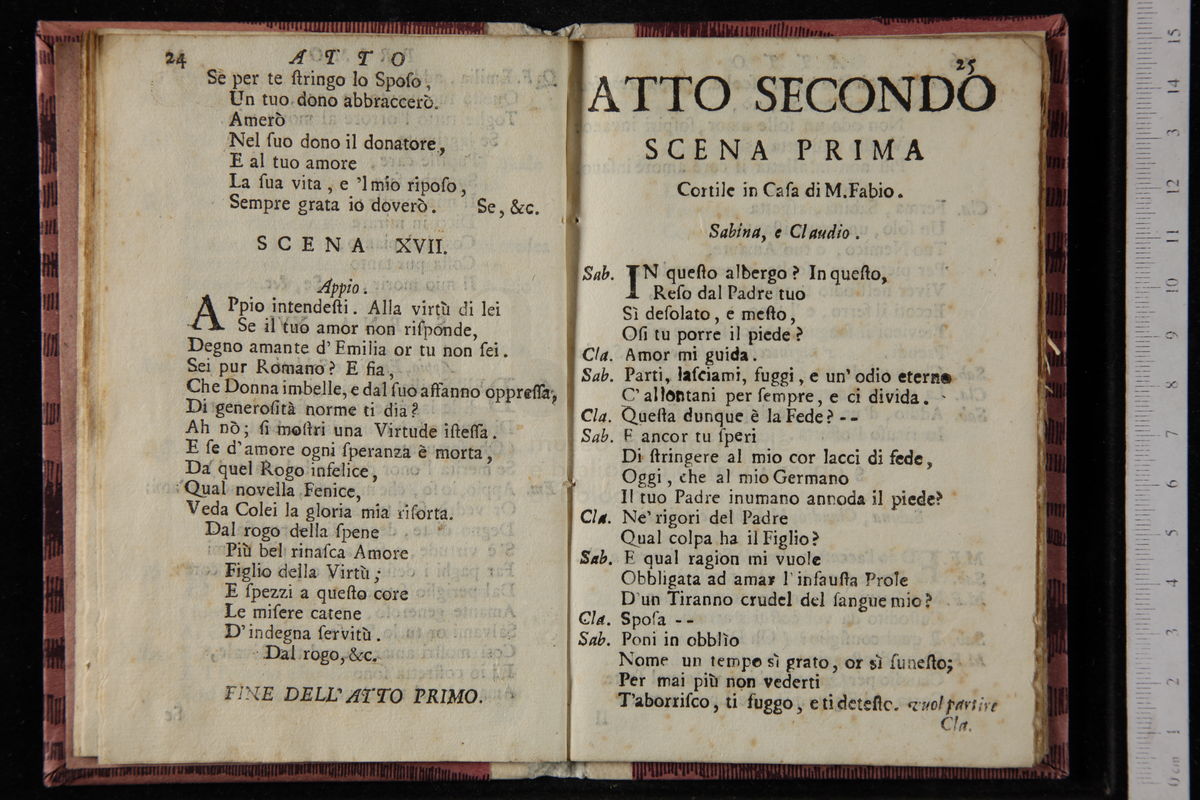 24 ATTO
Se per te ſtringo lo Spoſo,
Un tuo dono abbraccerò.
Amerò
Nel ſuo dono il donatore,
E al tuo amore
La ſua vita, e 'l mio ripoſo,
Sempre grata io doverò. Se, &c.
SCENA XVII.
Appio.
APpio intendeſti. Alla virtù di lei
Se il tuo amor non riſponde,
Degno amante d'Emilia or tu non ſei.
Sei pur Romano? E fia,
Che Donna imbelle, e dal ſuo affanno oppreſſa,
Di generoſità norme ti dia?
Ah nò; ſi moſtri una Virtude iſteſſa.
E ſe d'amore ogni ſperanza è morta,
Da quel Rogo infelice,
Qual novella Fenice,
Veda Colei la gloria mia riſorta.
Dal rogo della ſpene
Più bel rinaſca Amore
Figlio della Virtù;
E ſpezzi a queſto core
Le miſere catene
D'indegna ſervitù.
Dal rogo, &c.
FINE DELL'ATTO PRIMO.
25
ATTO SECONDO
SCENA PRIMA
Cortile in Caſa di M. Fabio.
Sabina, e Claudio.
Sab. IN queſto albergo? In queſto,
Reſo dal Padre tuo
Sì deſolato, e meſto,
Oſi tu porre il piede?
Cla. Amor mi guida.
Sab. Parti, laſciami, fuggi, e un'odio eterno
C'allontani per ſempre, e ci divida.
Cla. Queſta dunque è la Fede? --
Sab. E ancor tu ſperi
Di ſtringere al mio cor lacci di fede,
Oggi, che al mio Germano
Il tuo Padre inumano annoda il piede?
Cla. Ne' rigori del Padre
Qual colpa ha il Figlio?
Sab. E qual ragion mi vuole
Obbligata ad amar l'infauſta Prole
D'un Tiranno crudel del ſangue mio?
Cla. Spoſa --
Sab. Poni in obblìo
Nome un tempo sì grato, or sì funeſto;
Per mai più non vederti
T'aborriſco, ti fuggo, e ti deteſto. vuol partire
Cla.